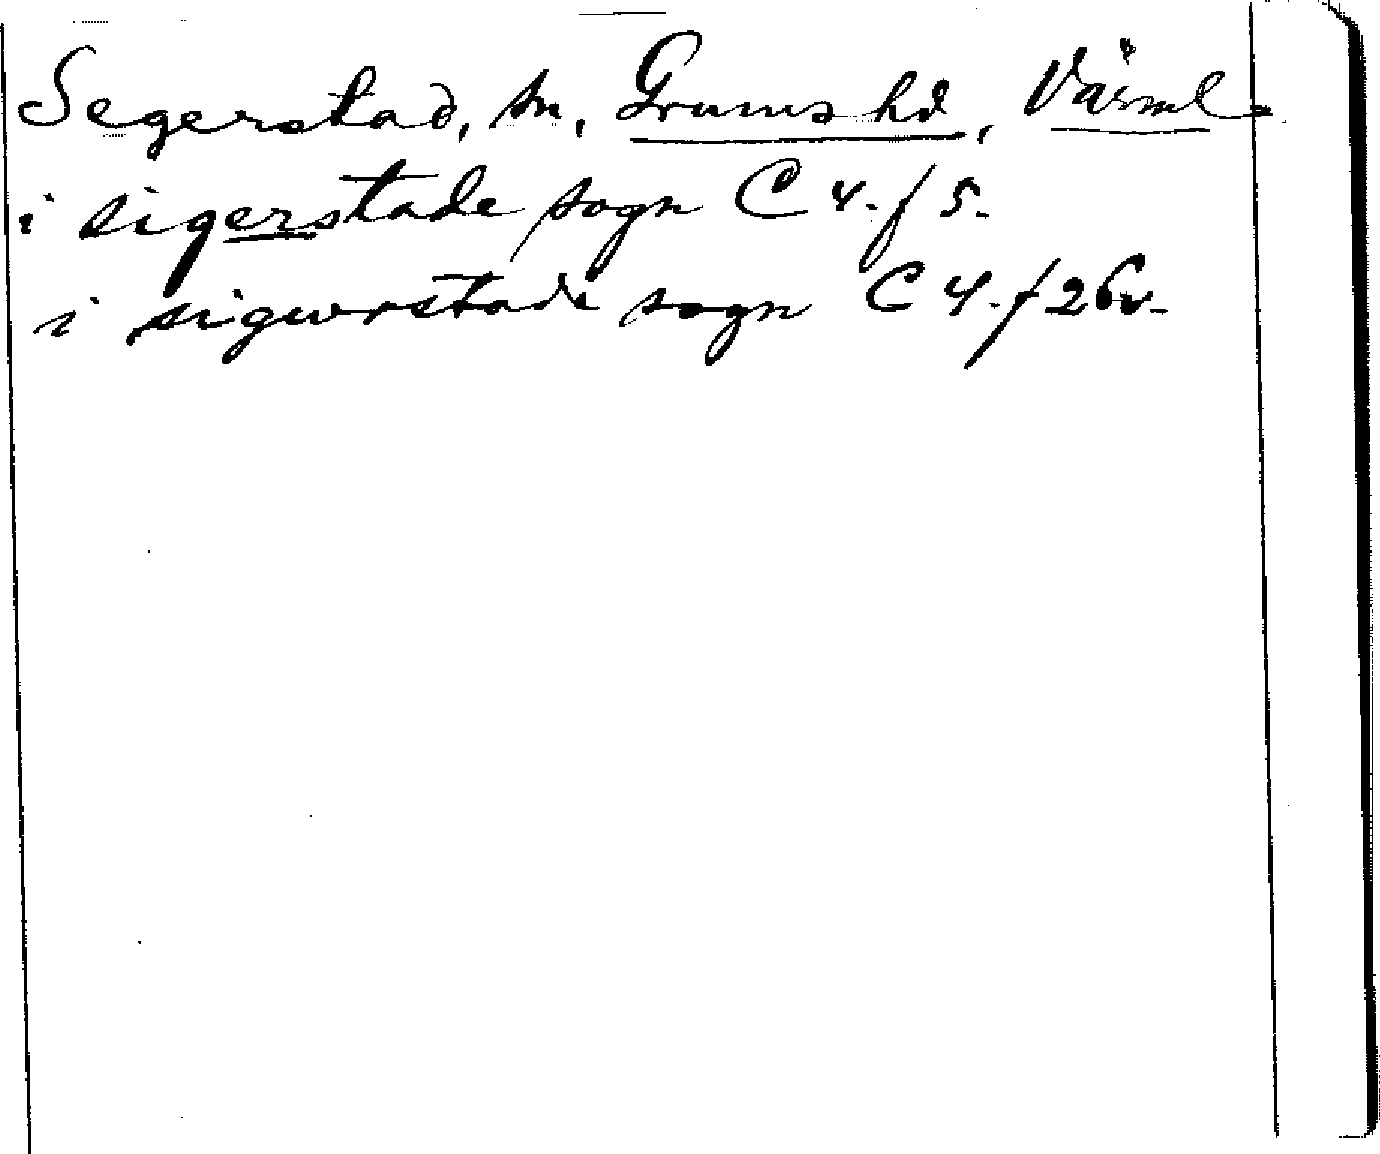 Segerstad, sn, Grums hd, Värml.
i sigerstade sogn C 4. f 5.
i sigwrstade sogn C 4. f 26v.